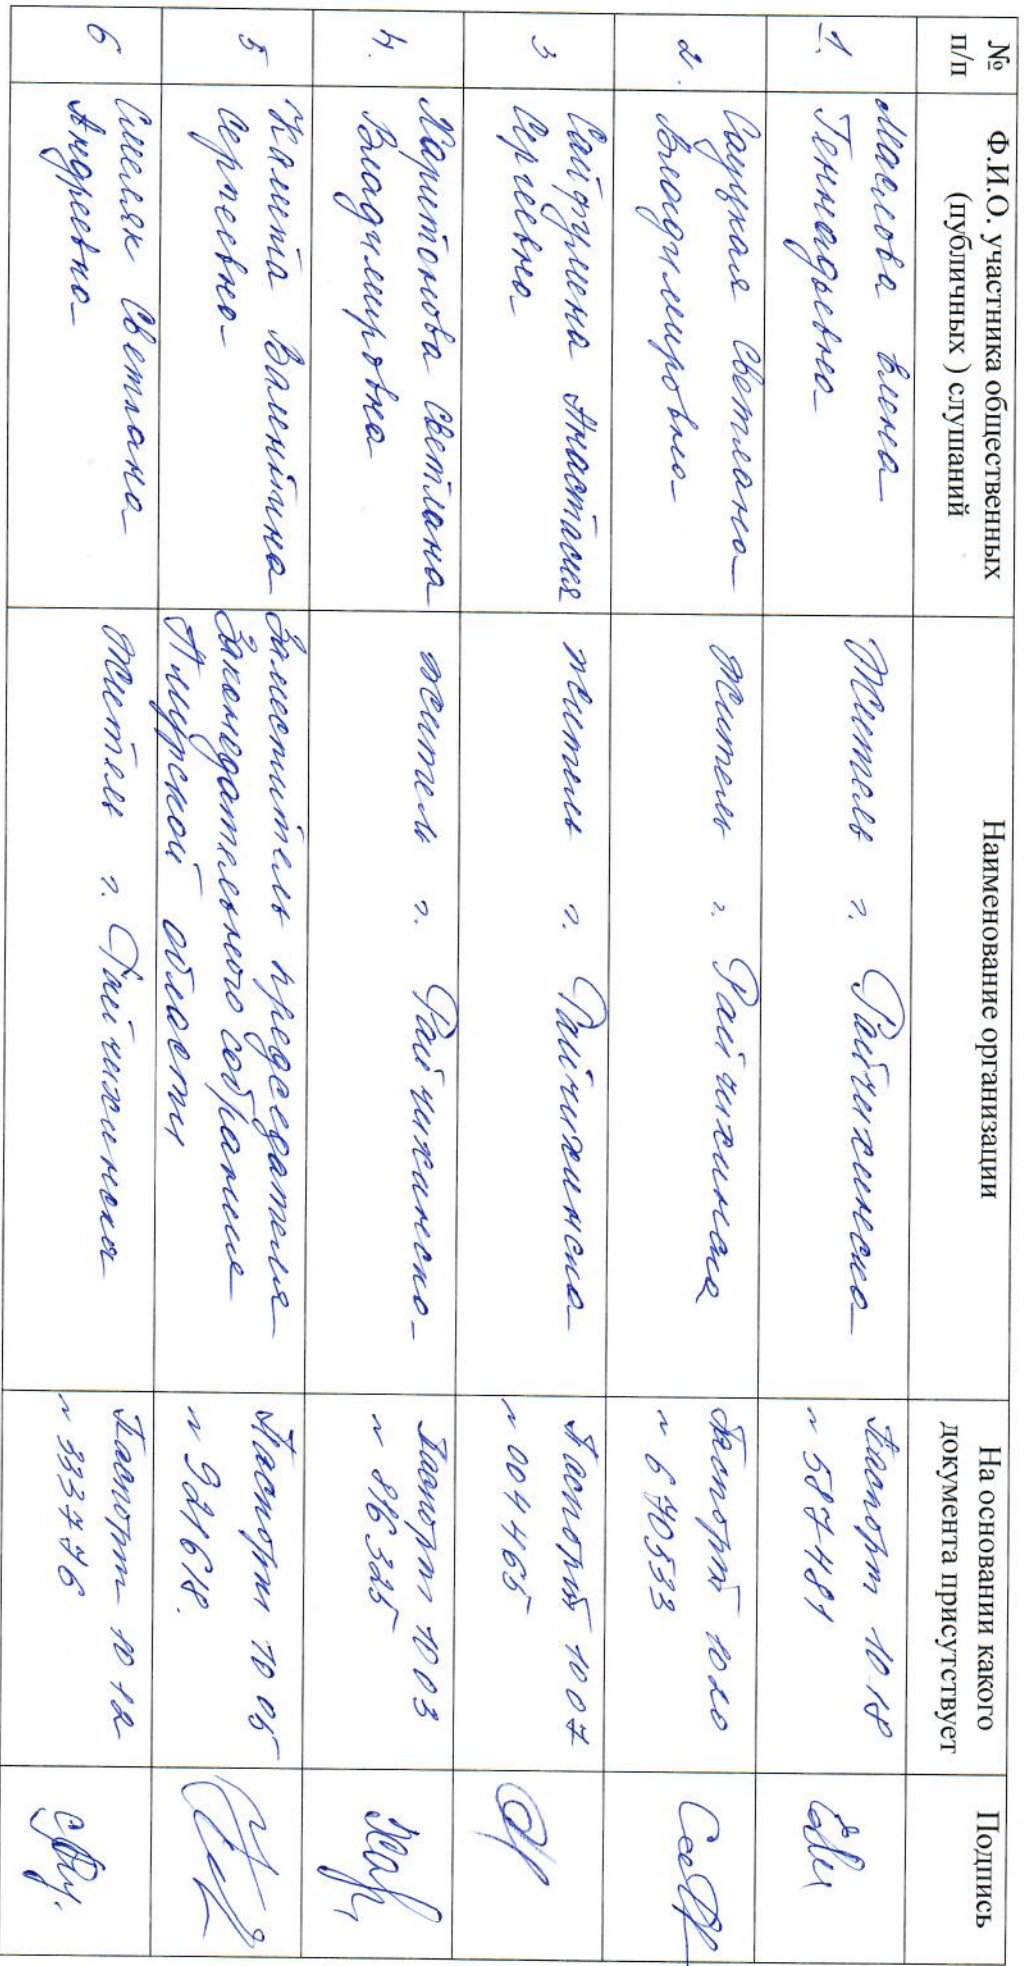 № п/п
Ф.И.О. участника общественных (публичных ) слушаний
Наименование организации
На основании какого документа присутствует
Подпись
1.
Маслова Елена
Геннадьевна
Житель г. Райчихинска
Паспорт 10 18
№ 587481
2.
Сауцкая Светлана
Владимировна
житель г. Райчихинска
Паспорт 1020
№ 670533
3
Сайфулина Анастасия
Сергеевна
житель г. Райчихинска
Паспорт 1007
№ 004465
4.
Харитонова Светлана
Владимировна
житель г. Райчихинска
Паспорт 1003
№ 816325
5
Калита Валентина
Сергеевна
Заместитель председателя
Законодательного собрания
Амурской области
Паспорт 10 05
№ 921618.
6
Смеляк Светлана
Андреевна
Житель г. Райчихинска
Паспорт 10 12
№ 333776